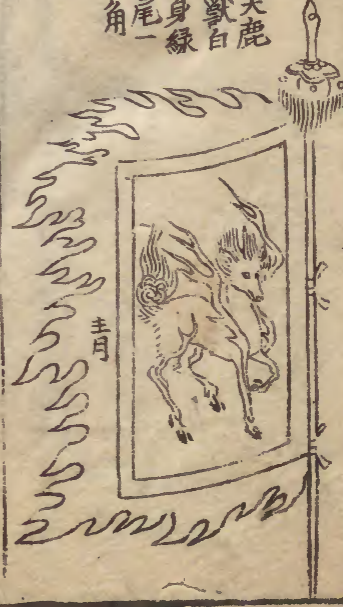 天鹿
獸白
身綠
尾一
角
青